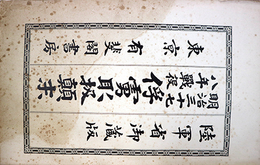 陸軍省御藏版
明治三十七
八年戰役
俘虜取扱顛末
東京 有斐閣書房